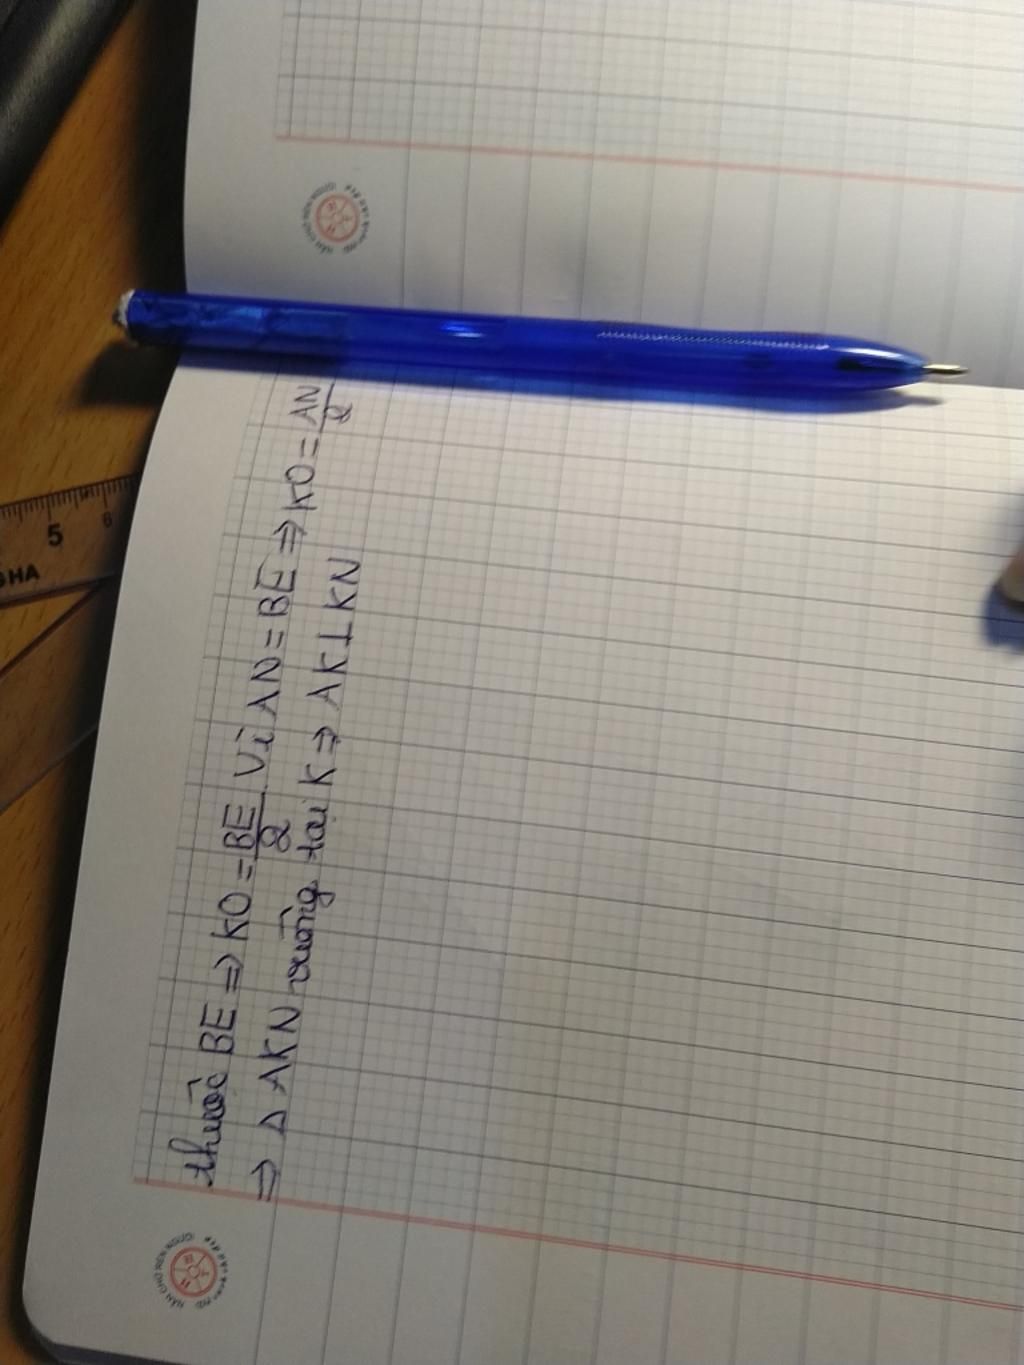 thuộc BE => KO = BE/2. Vì AN = BE => KO = AN/2
=> Δ AKN vuông tại K => AK ⊥ KN
5
6